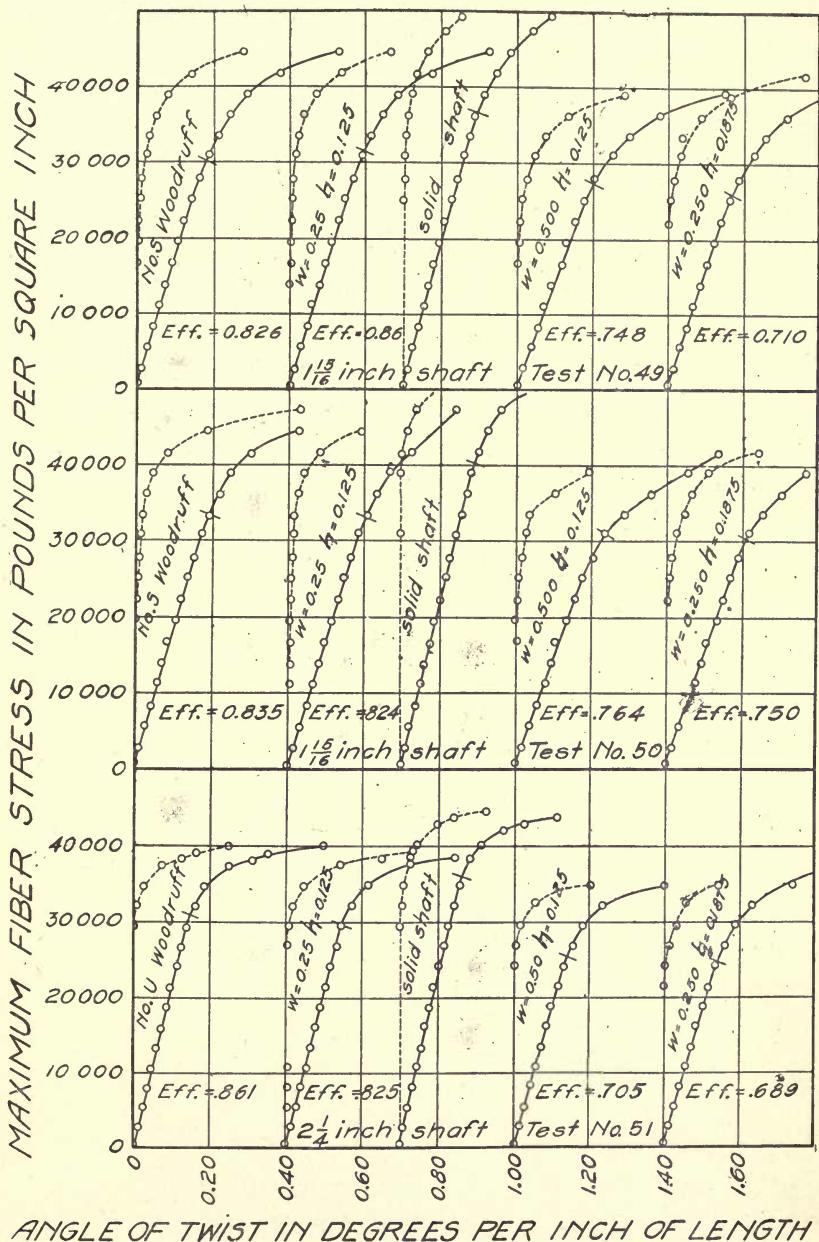 MAXIMUM FIBER STRESS IN POUNDS PER SQUARE INCH
40 000
30 000
20 000
10 000
0
No.S Woodruff
w=0.25 h=0.125
solid shaft
w=0.500 h=0.125
w=0.250 h=0.1875
Eff.=0.826
Eff.=0.86
Eff=.748
Eff=0.710
1 15/16 inch shaft
Test No.49
40 000
30 000
20 000
10 000
0
No.S Woodruff
w=0.25 h=0.125
solid shaft
w=0.500 h=0.125
w=0.250 h=0.1875
Eff.=0.835
Eff.=824
Eff=.764
Eff=.750
1 15/16 inch shaft
Test No.50
40 000
30 000
20 000
10 000
0
No.U Woodruff
w=0.25 h=0.125
solid shaft
w=0.50 h=0.125
w=0.250 h=0.1875
Eff=.861
Eff=825
Eff=.705
Eff=.689
2 1/4 inch shaft
Test No.51
0
0.20
0.40
0.60
0.80
1.00
1.20
1.40
1.60
ANGLE OF TWIST IN DEGREES PER INCH OF LENGTH